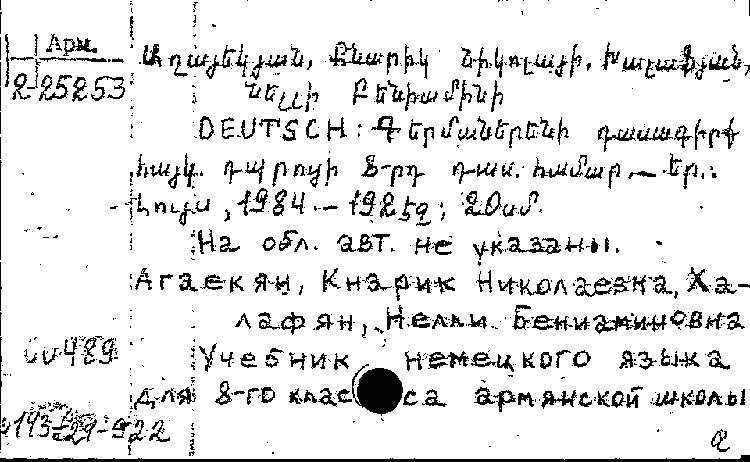 Арм.
2-25253
Աղայեկյան, Քնարիկ Նիկոլայի, Խալաֆյան,
Նելլի Բենիամինի
DEUTSCH: Գերմաներենի դասագիրք
հայկ. դպրոցի 8-րդ դաս. համար.— Եր.:
Լույս, 1984.— 192 էջ; 20սմ.
На обл. авт. не указаны.
Агаекян, Кнарик Николаевна, Ха-
лафян, Нелли Бениаминовна
Учебник немецкого языка
для 8-го клас са армянской школы
489
2